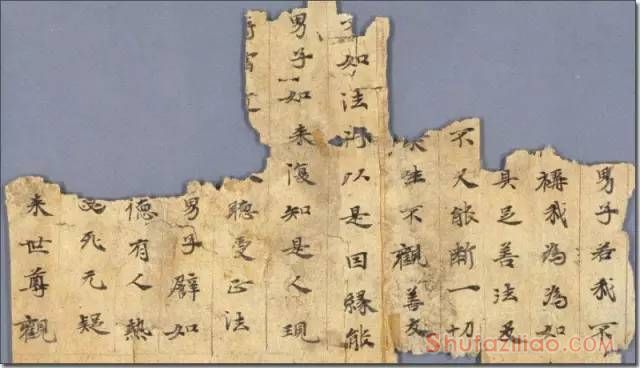 男子若我不
稱我為為如
具足善法及
不久能斷一切
生不觀善友
如法得以是因緣能
男子如来復知是人現
聽受正法
男子譬如
德有人熱
死无疑
来世尊觀
Shufaziliao.com